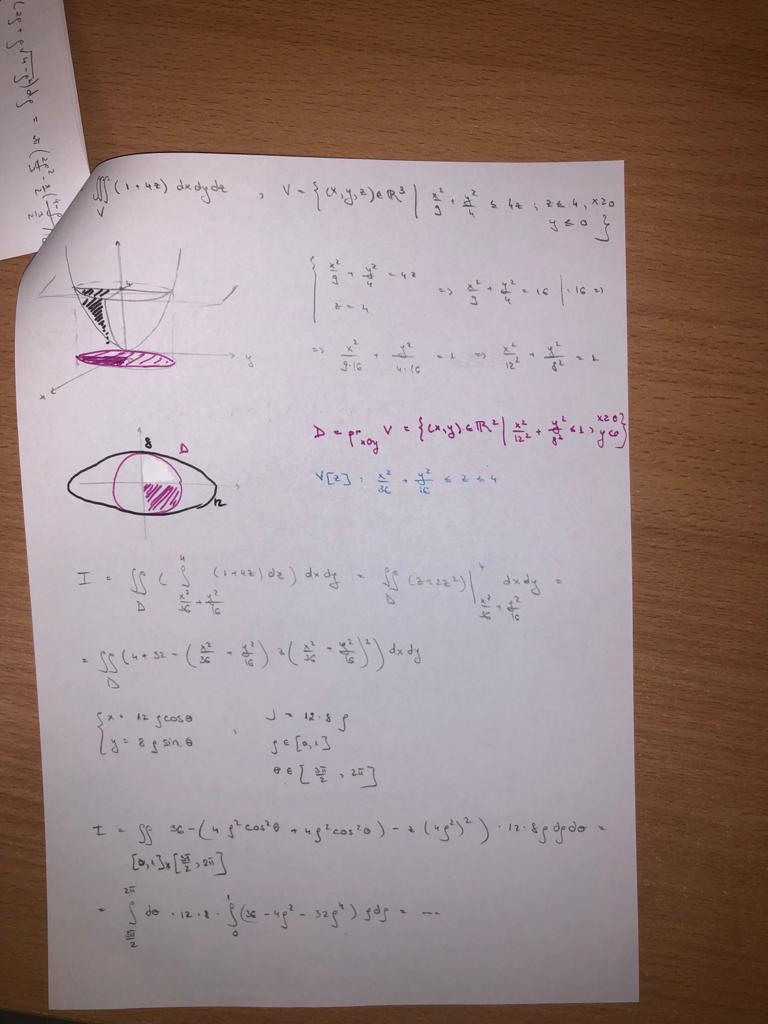 ∭_V (1+4z) dxdydz , V = {(x,y,z)∈ℝ³ | x²/9 + y²/4 ≤ 4z ; z ≤ 4, x≥0
y ≤ 0 }
4
y
x
{ x²/9 + y²/4 = 4z
z = 4
=> x²/9 + y²/4 = 16 | :16 =>
=> x²/(9·16) + y²/(4·16) = 1 => x²/12² + y²/8² = 1
D = pr_xOy V = {(x,y)∈ℝ² | x²/12² + y²/8² ≤ 1, x≥0 y≤0}
V[z] : x²/36 + y²/16 ≤ z ≤ 4
8
D
12
I = ∬_D ( ∫_{x²/36 + y²/16}^4 (1+4z) dz ) dxdy = ∬_D (z+2z²) |_{x²/36 + y²/16}^4 dxdy =
= ∬_D (4+32 - (x²/36 + y²/16) - 2(x²/36 + y²/16)²) dxdy
{ x = 12 ρcosθ , J = 12·8 ρ
y = 8 ρ sin θ ρ∈[0,1]
θ∈[3π/2 , 2π]
I = ∬ 36-(4ρ²cos²θ + 4ρ²cos²θ) - 2(4ρ²)²) · 12·8ρ dρdθ =
[0,1]×[3π/2, 2π]
= ∫_{3π/2}^{2π} dθ · 12·8 · ∫_0^1 (36 - 4ρ² - 32ρ⁴) ρdρ = ...